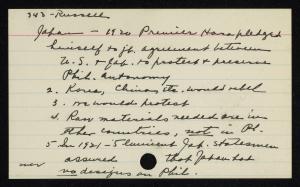 343 - Russell
Japan - 1920 Premier Hara pledged
himself to jp. agreement between
U.S. & Jap. to protect & preserve
Phil. autonomy
2. Korea, China, etc. would rebel
3. we would protest
4. Raw materials needed are in
other countries, not in P.I.
5. In 1921 - 5 eminent Jap. statesmen
assured that Japan had
no designs on Phil.
over